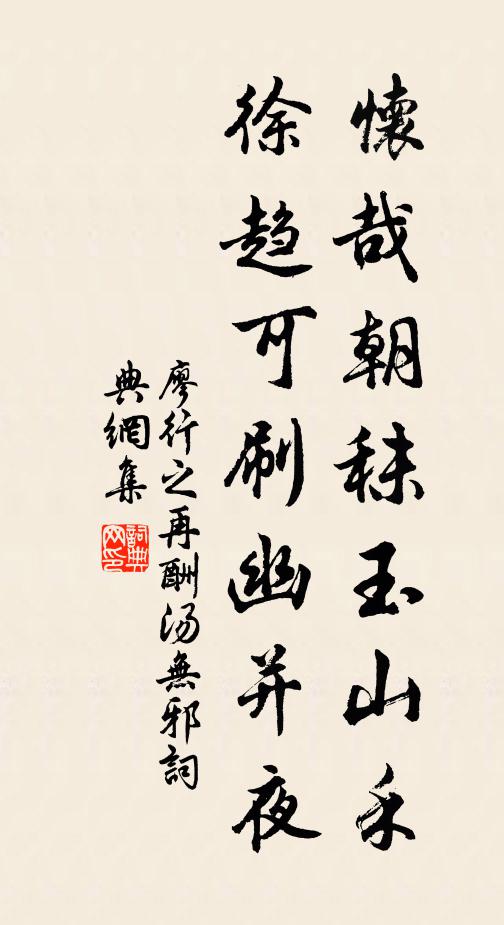 懷哉朝秣玉山禾
徐趨可刷幽并夜
廖行之再酬湯無邪詞
典網集
詞典網印